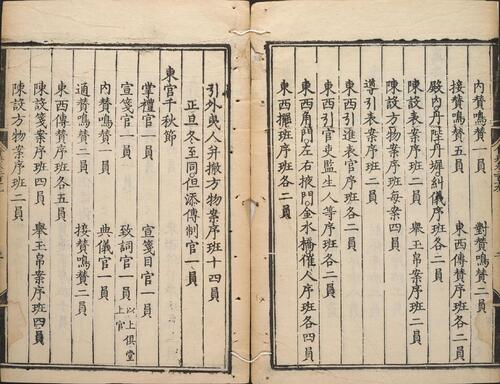 內贊鳴贊二員　對贊鳴贊二員
接贊鳴贊五員　東西傳贊序班二員
殿內丹陛丹墀糾儀序班各二員
陳設表案序班二員　舉表案序班二員
陳設方物案序班每案四員
導引表案序班二員
東西引進表官序班各二員
東西引官吏監生人等序班各二員
東西角門左右掖門金水橋催人序班各四員
東西擺班序班各二員
引外夷人并撤方物案序班十四員
正旦冬至同但添傳制官一員
東宫千秋節
掌禮官一員　宣箋目官一員
宣箋官一員　致詞官一員以上俱堂上官
內贊鳴贊一員　典儀官一員
通贊鳴贊二員　接贊鳴贊二員
東西傳贊序班各五員
陳設箋案序班四員　舉玉帛案序班四員
陳設方物案序班二員